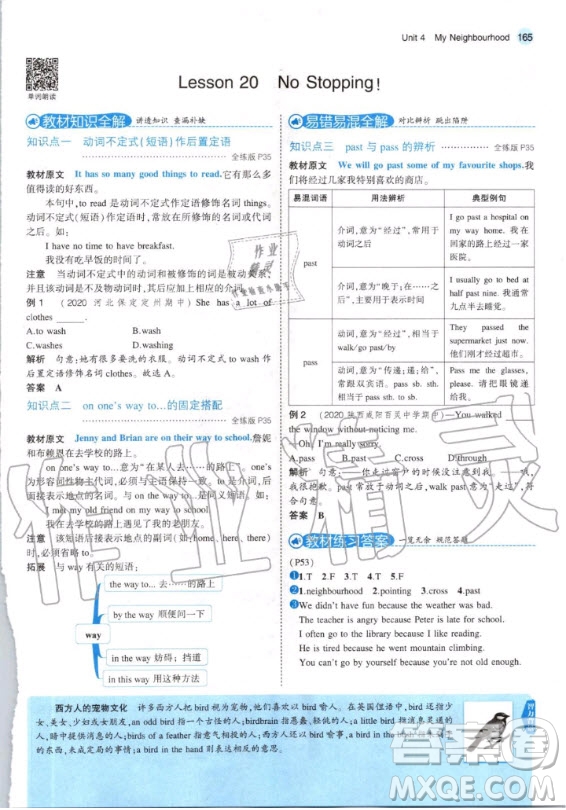 Unit 4 My Neighbourhood 165
单词朗读
Lesson 20 No Stopping!
教材知识全解 讲透知识 查漏补缺
知识点一 动词不定式(短语)作后置定语
全练版 P35
教材原文 It has so many good things to read. 它有那么多
值得读的好东西。
本句中, to read 是动词不定式作后置定语修饰名词 things。
动词不定式(短语)作定语时,常放在所修饰的名词或代词
之后。如:
I have no time to have breakfast.
我没有吃早饭的时间了。
注意 当动词不定式中的动词和被修饰的词是被动关系,
并且该动词是不及物动词时,其后应加上相应的介词。
例 1 (2020 河北保定定州期中) She has a lot of
clothes ____.
A.to wash B.wash
C.washes D.washing
解析 句意:她有很多要洗的衣服。动词不定式 to wash 作
后置定语修饰名词 clothes。故选 A。
答案 A
知识点二 on one's way to...的固定搭配
全练版 P35
教材原文 Jenny and Brian are on their way to school. 詹妮
和布赖恩在去学校的路上。
on one's way to...意为“在某人去……的路上”。one's
为形容词性物主代词,必须与主语保持一致。to 为介词,后
面接表示地点的名词。与 on the way to...是同义短语。如:
I met my old friend on my way to school.
我在去学校的路上遇见了我的老朋友。
注意 该短语后接表示地点的副词(如:home, here, there)
时,to 必须省略。
拓展 与 way 有关的短语:
way
the way to... 去……的路上
by the way 顺便问一下
in the way 妨碍;挡道
in this way 用这种方法
易错易混全解 对比辨析 跳出陷阱
知识点三 past 与 pass 的辨析
全练版 P35
教材原文 We will go past some of my favourite shops. 我
们将经过几家我特别喜欢的商店。
易混词语 用法辨析 典型例句
past
介词,意为“经过”,常用于
动词之后
I go past a hospital on
my way home. 我在
回家的路上经过一家
医院。
介词,意为“晚于;在……之
后”,主要用于表示时间
I usually go to bed at
half past nine. 我通常
九点半去睡觉。
pass
动词,意为“经过”,相当于
walk/go past/by
They passed the
supermarket just now.
他们刚才经过超市。
动词,意为“传递;递;给”,
常跟双宾语。pass sb. sth.
相当于 pass sth. to sb.
Pass me the glasses,
please. 请把眼镜递
给我。
例 2 (2020 陕西咸阳百灵中学期中) —You walked
the window without noticing me.
—Oh! I'm really sorry.
A.pass B.past C.passed D.through
解析 句意:——你走过窗户的时候没有注意到我。——哦,
我很抱歉。past 常放于动词之后,walk past 意为“走过”,符
合句意。
答案 B
教材练习答案 一览无余 规范答题
(P53)
❶1.T 2.F 3.T 4.T 5.F
❷1.neighbourhood 2.pointing 3.cross 4.past
❸We didn't have fun because the weather was bad.
The teacher is angry because Peter is late for school.
I often go to the library because I like reading.
He is excited because it is snowing.
I can't go by yourself because you're not old enough.
西方人的宠物文化 许多西方人把 bird 视为宠物,他们喜欢以 bird 喻人。在英国俚语中,bird 还指少
女、美女、少妇或女朋友,an odd bird 指一个古怪的人;birdbrain 指愚蠢、轻佻的人;a little bird 指消息灵通的
人,或私下告诉消息的人;birds of a feather 含贬义,指一丘之貉。西方人还以 bird 喻事,a bird in the bush 指
未定、未成定局的事情;a bird in the hand 则表达相反的意思。
作业
精灵
作业精灵
答案圈
MXQE.COM